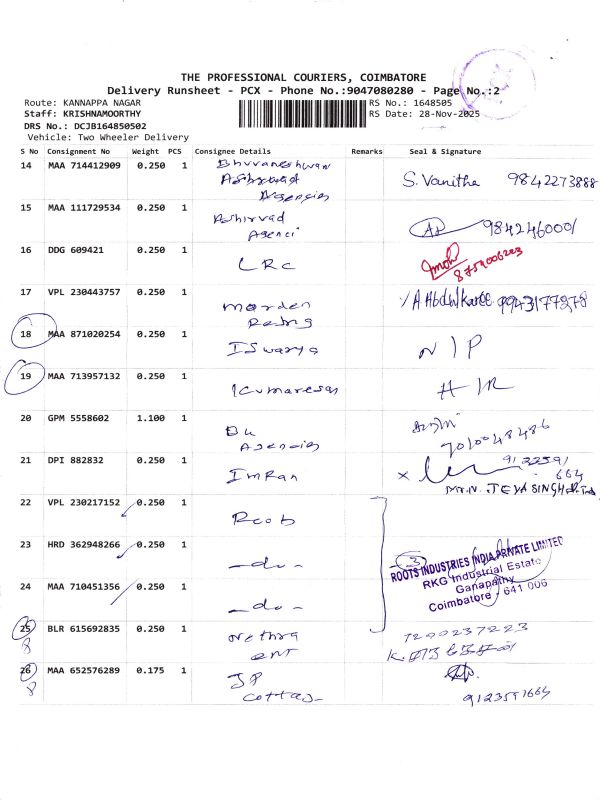 THE PROFESSIONAL COURIERS, COIMBATORE
Delivery Runsheet - PCX - Phone No.:9047080280 - Page No.:2
Route: KANNAPPA NAGAR
RS No.: 1648505
Staff: KRISHNAMOORTHY
RS Date: 28-Nov-2025
DRS No.: DCJB164850502
Vehicle: Two Wheeler Delivery
S No Consignment No Weight PCS Consignee Details Remarks Seal & Signature
14 MAA 714412909 0.250 1 Agencies S. Vanitha 9842273888
15 MAA 111729534 0.250 1 Ashirvad Agenci 9842460001
16 DDG 609421 0.250 1 LRC 8754006223
17 VPL 230443757 0.250 1 A Abdul Karee 9943177278
18 MAA 871020254 0.250 1 ISwarya N I P
19 MAA 713957132 0.250 1 Kumaresan
20 GPM 5558602 1.100 1 Agencies 7010048486
21 DPI 882832 0.250 1 Imran Mr.N. JEYA SINGH
22 VPL 230217152 0.250 1
23 HRD 362948266 0.250 1 -do- 3
ROOTS INDUSTRIES INDIA PRIVATE LIMITED
RKG Industrial Estate
Ganapathy
Coimbatore - 641 006
24 MAA 710451356 0.250 1 -do-
25 BLR 615692835 0.250 1 Nethra ent 7200237223
8
26 MAA 652576289 0.175 1 JP Cottag 9123551664
8